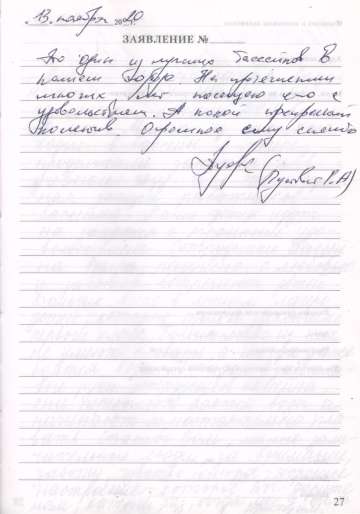 13. ноября 20
ЗАЯВЛЕНИЕ №
Это один из лучших бассейнов в
нашем городе. На протяжении
многих лет посещаю его с
удовольствием. А какой прекрасный
коллектив. Огромное ему спасибо
27